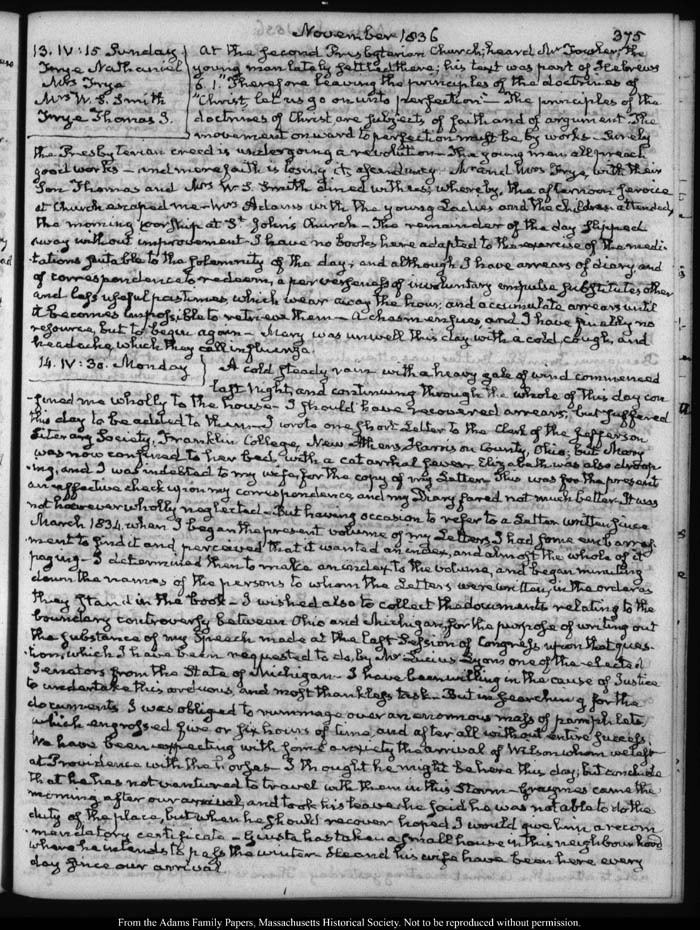 November 1836
375
13. IV:15 Sunday
Frye Nathaniel
Mrs Frye
Mrs W. S. Smith
Frye Thomas S.
At the second Presbyterian Church, heard Mr Fowler, the
young man lately settled there; his text was part of Hebrews
6. 1. "Therefore leaving the principles of the doctrines of
"Christ, let us go on unto perfection" — The principles of the
doctrines of Christ are subjects of faith and of argument. The
movement onward to perfection must be by works — Surely
the Presbyterian creed is undergoing a revolution — The young men all preach
good works — and mere faith is losing its ascendency. Mr and Mrs Frye, with their
Son Thomas and Mrs W S. Smith dined with us; whereby, the afternoon service
at Church escaped me — Mrs Adams with the young Ladies and the Children attended
the morning worship at St John's Church — The remainder of the day slipped
away without improvement — I have no books here adapted to the exercise of the medi-
tations suitable to the solemnity of the day; and although I have arrears of diary, and
of correspondence to redeem, a perverseness of involuntary impulse substitutes other
and less useful pastimes, which wear away the hour; and accumulate arrears until
it becomes impossible to retrieve them — A chasm ensues and I have finally no
resource, but to begin again — Mary was unwell this day with a cold, cough, and
headache, which they call influenza.
14. IV:30. Monday
A cold steady rain with a heavy gale of wind commenced
last Night, and continuing through the whole of this day con
-fined me wholly to the house — I should have recovered arrears, but suffered
this day to be added to them — I wrote one short Letter to the Clerk of the Jefferson
Literary Society, Franklin College, New Athens Harrison County, Ohio; but Mary
was now confined to her bed, with a catarrhal fever. Elizabeth was also droop
-ing, and I was indebted to my wife for the copy of my Letter. This was for the present
an effective check upon my correspondence, and my Diary fared not much better. It was
not however wholly neglected — But having occasion to refer to a Letter written since
March 1834, when I began the present volume of my Letters, I had some embarrass
-ment to find it and perceived that it wanted an index, and almost the whole of it
paging — I determined then to make an index to the volume, and began minuting
down the names of the persons to whom the Letters were written, in the order as
they stand in the book — I wished also to collect the documents relating to the
boundary controversy between Ohio and Michigan, for the purpose of writing out
the substance of my speech made at the last Session of Congress upon that ques-
-tion, which I have been requested to do, by Mr Lucius Lyon one of the elected
Senators from the State of Michigan — I have been willing in the cause of Justice
to undertake this arduous, and most thankless task — But in searching for the
documents I was obliged to rummage over an enormous mass of pamphlets,
which engrossed five or six hours of time, and after all without entire success.
We have been expecting with some anxiety the arrival of Wilson whom we left
at Providence with the horses — I thought he might be here this day, but conclude
that he has not ventured to travel with them in this Storm — came the
morning after our arrival, and took his leave. he said he was not able to do the
duty of the place, but when he should recover hoped I would give him a recom
-mendatory certificate — Giusta has taken a small house in this neighbourhood
where he intends to pass the winter. He and his wife have been here every
day since our arrival.
From the Adams Family Papers, Massachusetts Historical Society. Not to be reproduced without permission.